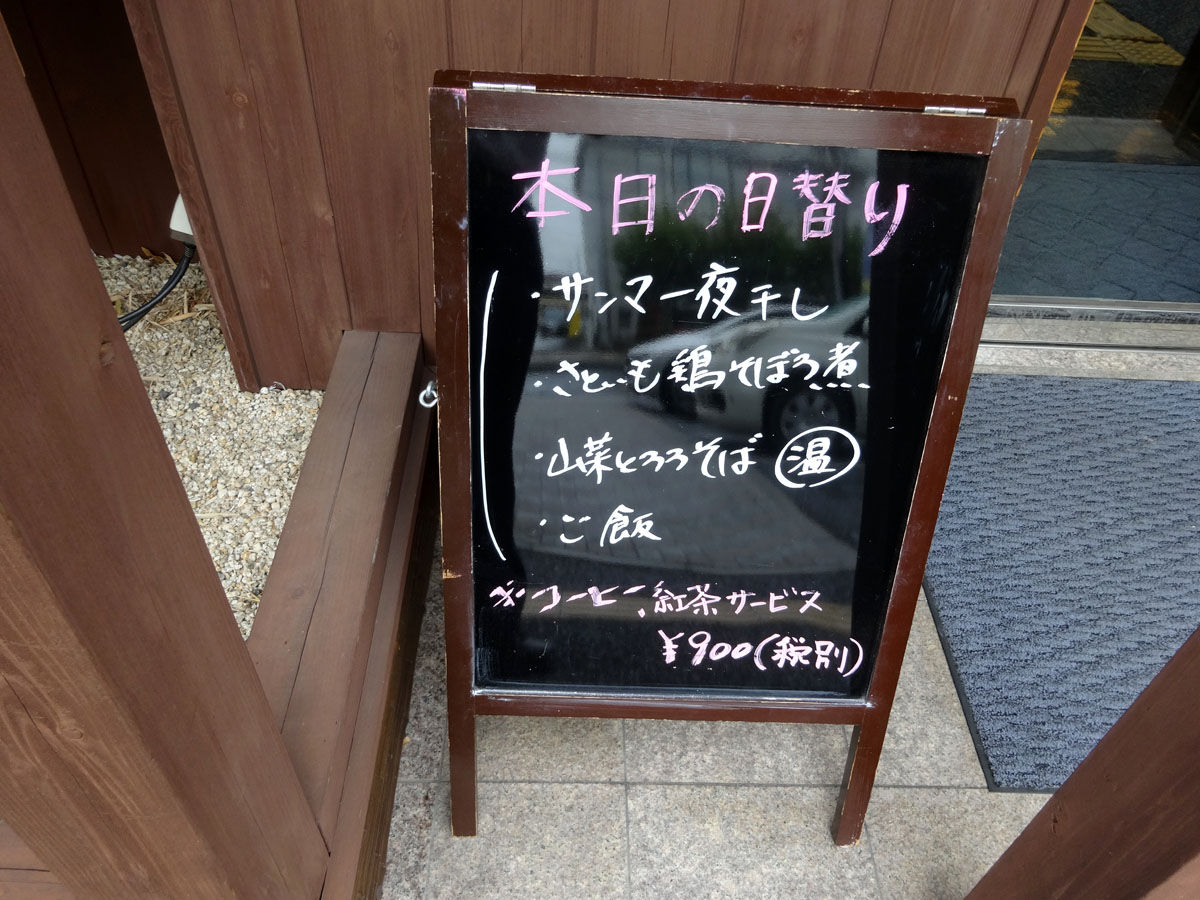 本日の日替り
・サンマ一夜干し
・さといも鶏そぼろ煮
・山菜とろろそば 温
・ご飯
コーヒー、紅茶サービス
¥900(税別)